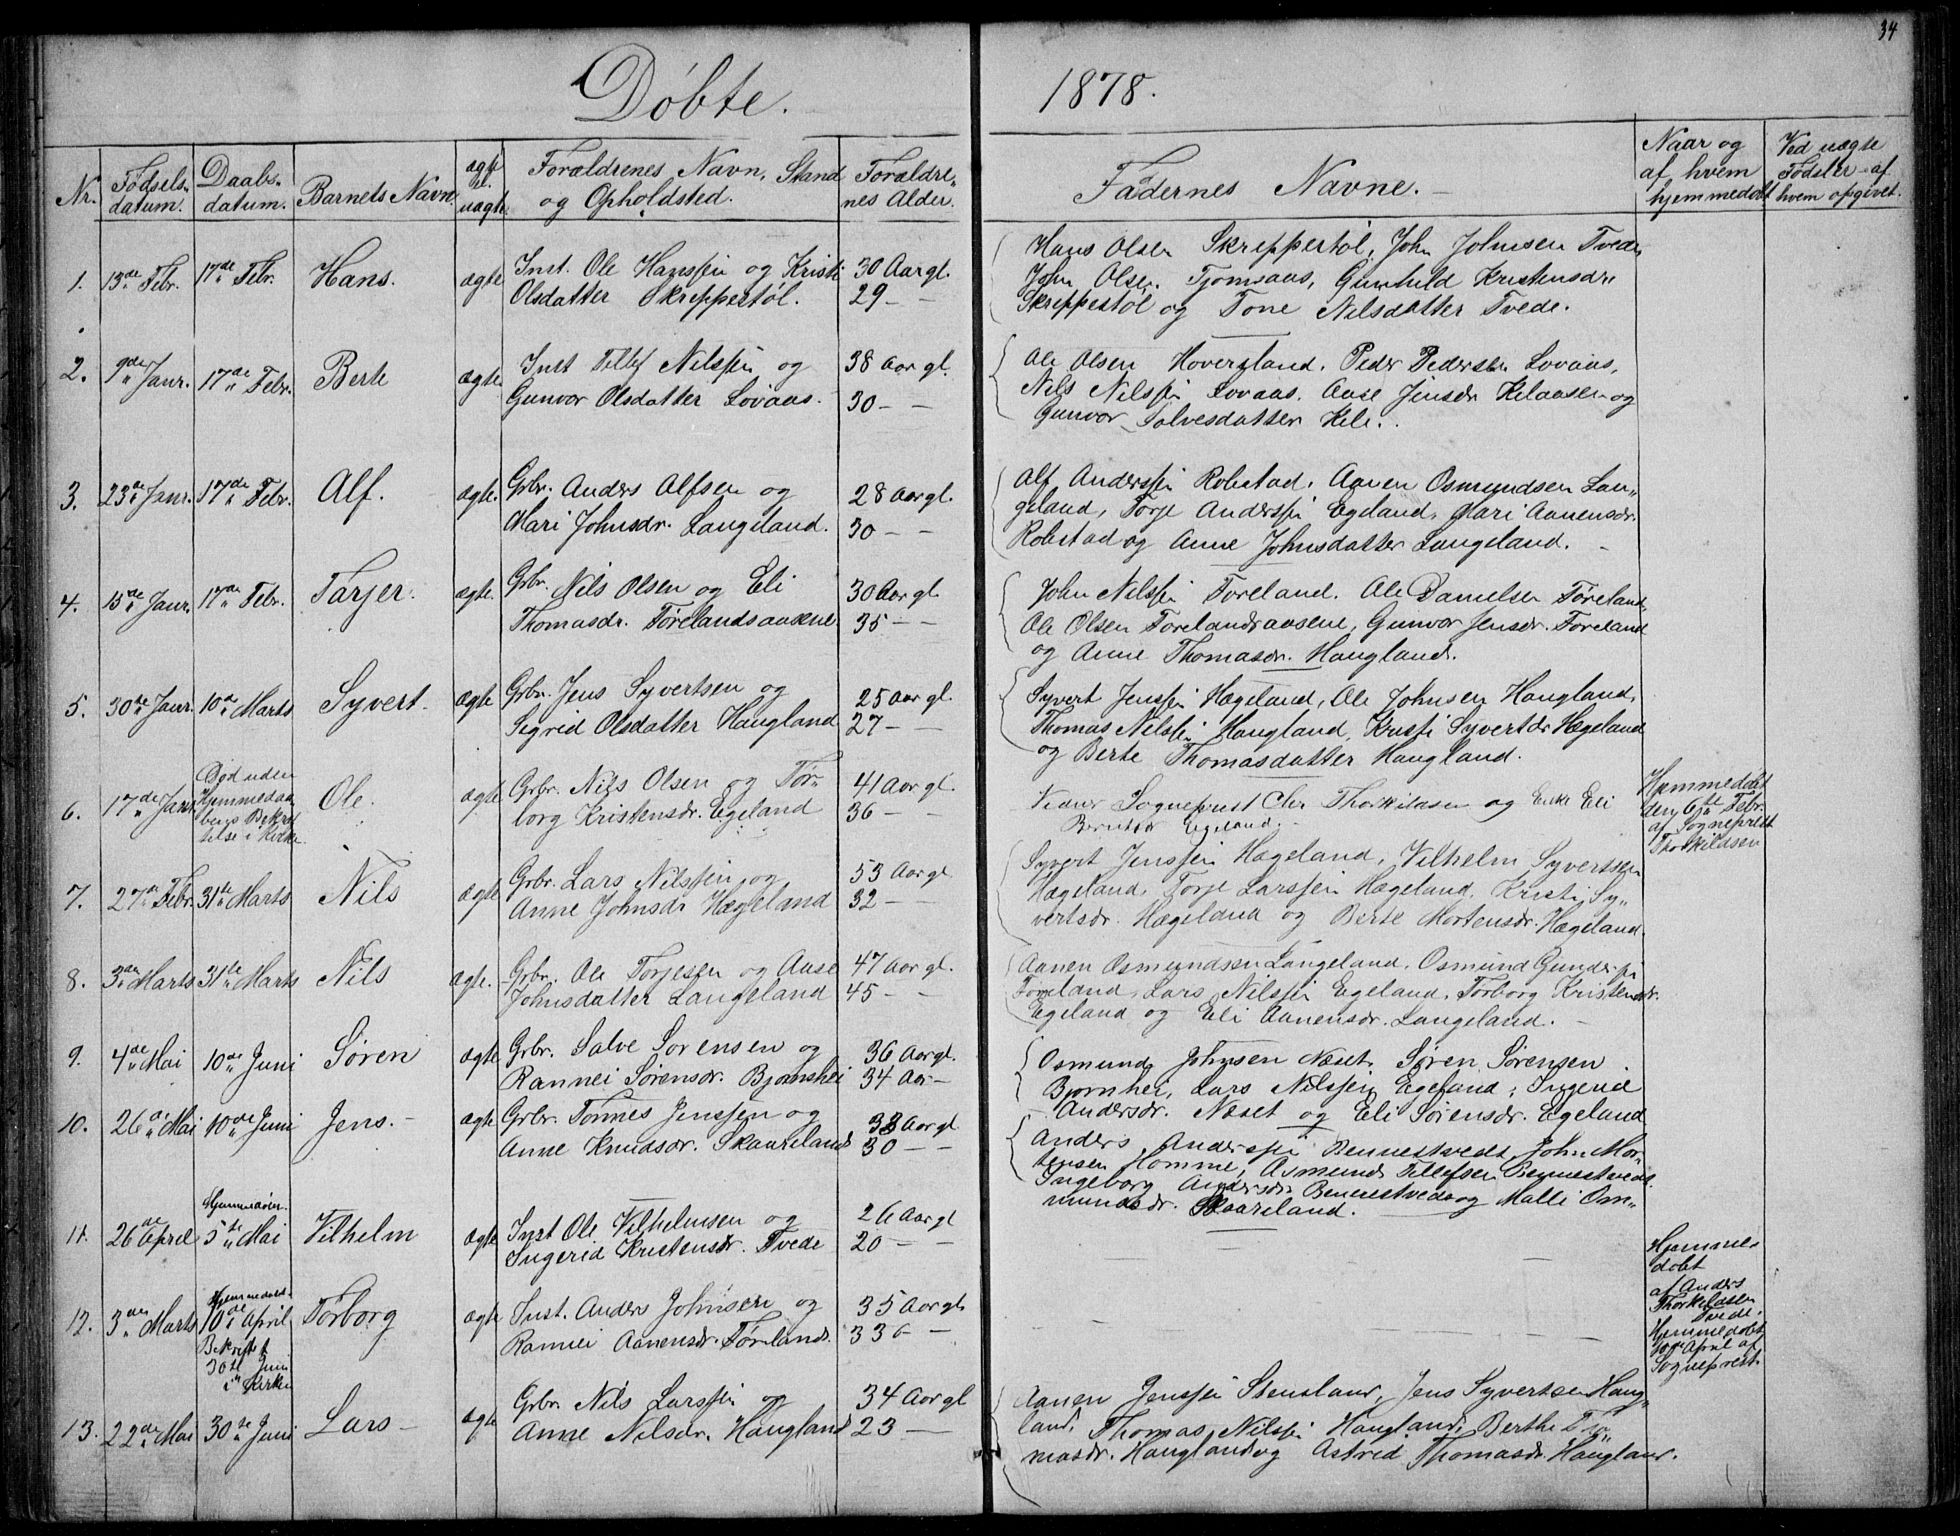 34
Døbte. 1878.
Nr. Fødsels- datum. Daabs- datum. Barnets Navn ægte el. uægte Forældrenes Navn, Stand og Opholdsted. Forældre- nes Alder. Faddernes Navne. Naar og af hvem hjemmedøbt Ved uægte Fødsler af hvem opgivet.
1. 13de Febr. 17de Febr. Hans. ægte Inst. Ole Hanssen og Kristi 30 Aar gl.
Olsdatter Skreppestøl. 29 — —
Hans Olsen Skreppestøl, John Johnsen Tvede,
John Olsen Tjomsaas, Gunhild Kristensdr.
Skreppestøl og Tone Nilsdatter Tvede.
2. 9de Janr. 17de Febr. Berte ægte Inst Tellef Nilssen og 38 Aar gl.
Gunvor Olsdatter Lovaas. 30 — —
Ole Olsen Hoversland, Peder Pedersen Lovaas,
Nils Nilssen Lovaas. Aase Jensdr. Kelaasen og
Gunvor Salvesdatter Kile.
3. 23de Janr. 17de Febr. Alf. ægte. Grbr. Anders Alfsen og 28 Aar gl.
Mari Johnsdr. Langeland. 30 — —
Alf Anderssen Robstad, Aanen Osmundsen Lan-
geland, Torje Anderssen Egeland, Mari Aanensdr.
Robstad og Anne Johnsdatter Langeland.
4. 15de Janr. 17de Febr. Tarjer. ægte. Grbr. Nils Olsen og Eli 30 Aar gl.
Thomasdr. Førelandsaasene 35 — —
John Nilssen Føreland. Ole Danielsen Føreland,
Ole Olsen Førelandsaasene, Gunvor Jensdr. Føreland
og Anne Thomasdr. Haugland.
5. 30te Janr. 10de Marts Syvert. ægte Grbr. Jens Syvertsen og 25 Aar gl.
Sigrid Olsdatter Haugland 27 — —
Syvert Jenssen Hægeland, Ole Johnsen Haugland,
Thomas Nilssen Haugland, Kristi Syvertdr Hægeland
og Berte Thomasdatter Haugland.
6. 17de Janr Død uden Hjemmedaa- bens Bekræf- telse i Kirke. Ole. ægte Grbr. Nils Olsen og Tor- 41 Aar gl.
borg Kristensdr. Egeland 36 — —
Vidner Sogneprest Chr Thorkildsen og Enke Eli
Berntsdr Egeland.
Hjemmedøbt den 6te Febr. af Sogneprest Thorkildsen
7. 27de Febr. 31te Marts Nils ægte Grbr. Lars Nilssen og 53 Aar gl
Anne Johnsdr Hægeland 32 — —
Syvert Jenssen Hægeland, Vilhelm Syvertsen
Hægeland, Torje Larssen Hægeland, Kristi Sy-
vertsdr. Hægeland og Berte Mortensdr. Hægeland.
8. 3de Marts 31te Marts Nils ægte. Grbr. Ole Torjesen og Aase 47 Aar gl.
Johnsdatter Langeland 45 — —
Aanen Osmundsen Langeland, Osmund Gunderssen
Føreland, Lars Nilssen Egeland, Torborg Kristensdr.
Egeland og Eli Aanensdr. Langeland.
9. 4de Mai 10de Juni Søren ægte Grbr. Salve Sørensen og 36 Aar gl.
Rannei Sørensdr. Bjørnshei 34 Aar —
Osmund Johnsen Næset, Søren Sørensen
Bjørnhei, Lars Nilssen Egeland, Ingerid
Andersdr. Næset og Eli Sørensdr. Egeland
10. 26de Mai 10de Juni Jens. ægte Grbr. Tønnes Jenssen og 38 Aar gl
Anne Knudsdr. Skaareland 30 — —
Anders Anderssen Bennestvedt, John Mor-
tensen Homme, Asmund Tellefsen Bennestvedt.
Ingeborg Andersdr. Bennestvedt og Malli Os-
mundsdr. Skaareland.
11. 26de April Hjemmedøbt 5te Mai Vilhelm ægte Inst Ole Vilhelmsen og 26 Aar gl
Ingerid Kristensdr. Tvede 20 — —
Hjemme- døbt af Anders Thorkildsen Tvede.
12. 3de Marts Hjemmedøbt 10de April Bekræftet 30te Juni i Kirke Torborg ægte Inst. Anders Johnsen og 35 Aar gl.
Rannei Aanensdr. Føreland. 33 — —
Hjemmedøbt 10de April af Sogneprest.
13. 22de Mai 30te Juni Lars ægte Grbr. Nils Larssen og 34 Aar gl
Anne Nilsdr. Haugland 23 —
Aanen Jenssen Stensland, Jens Syvertsen Haug-
land, Thomas Nilssen Haugland, Berthe Tho-
masdr. Haugland og Astrid Thomasdr. Haugland.